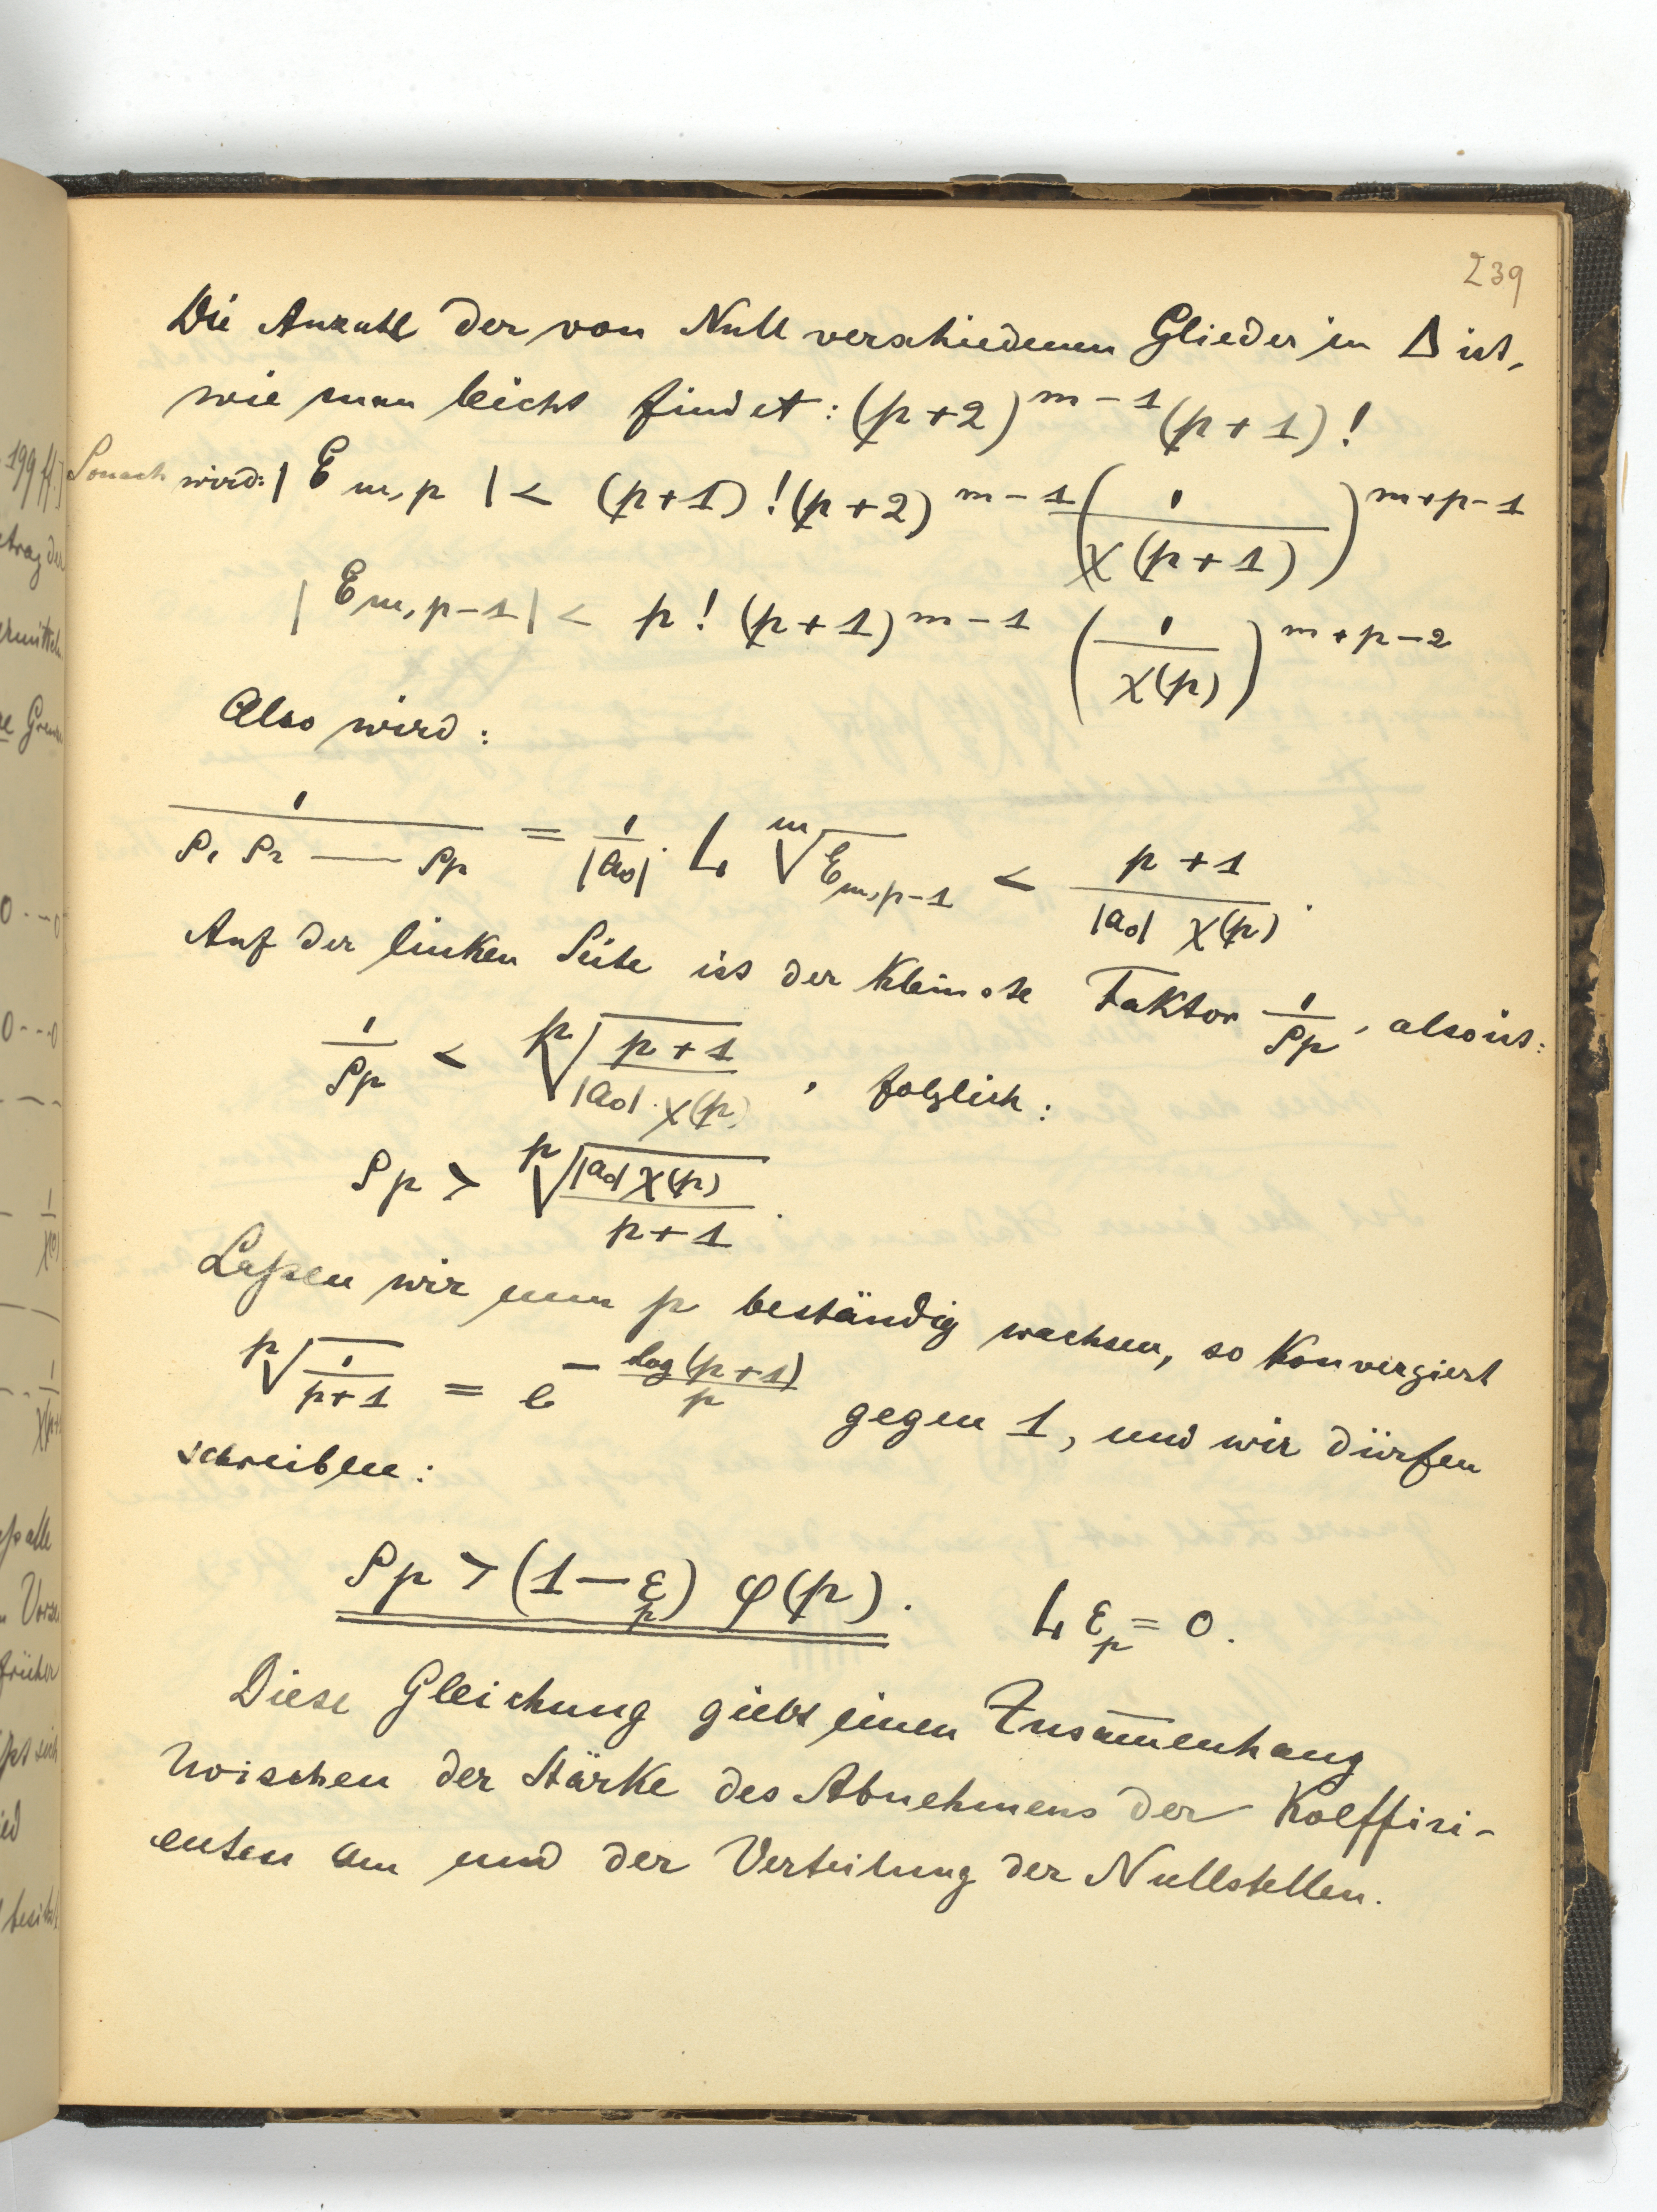 239
Die Anzahl der von Null verschiedenen Glieder in Δ ist,
wie man leicht findet: (p+2)^{m-1} (p+1)!
Sonach wird: | E_{m,p} | < (p+1)! (p+2)^{m-1} (1/χ(p+1))^{m+p-1}
| E_{m,p-1} | < p! (p+1)^{m-1} (1/χ(p))^{m+p-2}
Also wird:
1/(ρ_1 ρ_2 — ρ_p) = 1/|a_0| · L \sqrt[m]{E_{m,p-1}} < (p+1)/(|a_0| χ(p)).
Auf der linken Seite ist der kleinste Faktor 1/ρ_p, also ist:
1/ρ_p < \sqrt[p]{(p+1)/(|a_0| · χ(p))}, folglich:
ρ_p > \sqrt[p]{|a_0| χ(p)/(p+1)}.
Laßen wir nun p beständig wachsen, so konvergiert
\sqrt[p]{1/(p+1)} = e^{- log(p+1)/p} gegen 1, und wir dürfen
schreiben:
ρ_p > (1-ε_p) φ(p). L ε_p = 0.
Diese Gleichung giebt einen Zusam̅enhang
zwischen der Stärke des Abnehmens der Koeffizi-
enten a_m und der Verteilung der Nullstellen.
199 ff.]
0 - - 0
0 - - - 0